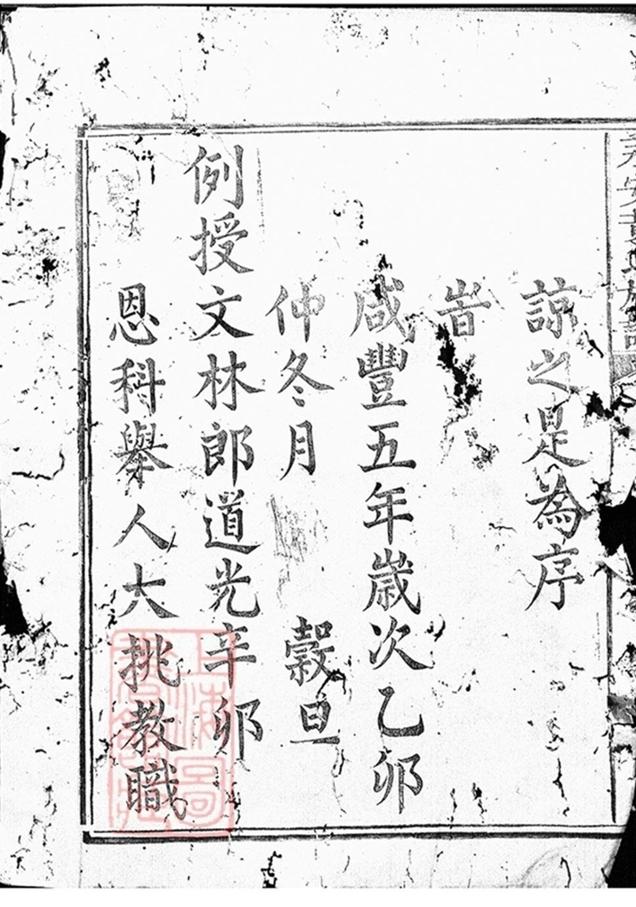 諒之是為序
旹
咸豐五年歲次乙卯
仲冬月 穀旦
例授文林郎道光辛卯
恩科舉人大挑教職
上海圖
書館藏